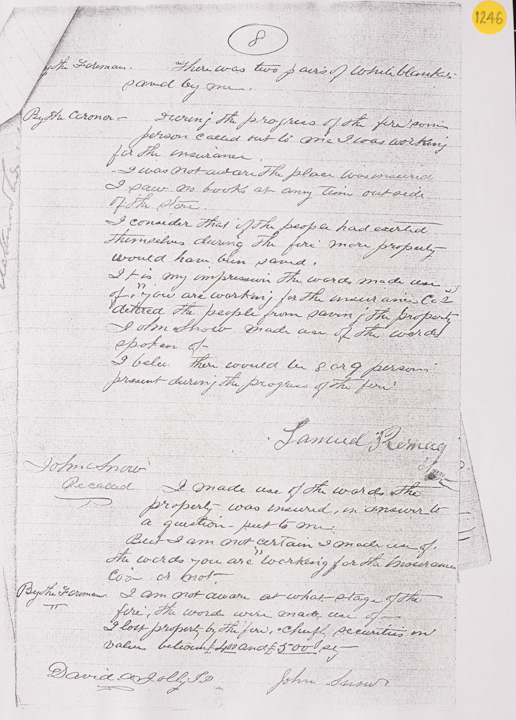 1246
8
By the Foreman. There was two pairs of White blankets
saved by me.
By the Coroner – During the progress of the fire some
person called out to me I was working
for the insurance.
I was not aware the place was insured
I saw no books at any time outside
of the store.
I consider that if the people had exerted
themselves during the fire more property
would have been saved.
It is my impression the words made use
of, "you are working for the insurance Co's"
deterred the people from saving the property
John Snow made use of the words
spoken of –
I believe there would be 8 or 9 persons
present during the progress of the fire.
Samuel
John Snow
Recalled I made use of the words the
property was insured, in answer to
a question put to me.
But I am not certain I made use of
the words you are "working for the Insurance
Co's or not.
By the Foreman I am not aware at what stage of the
fire, the word were made use of –
I lost property by the fire, chiefly securities in
value between £400 and £500
David Jolly
John Snow